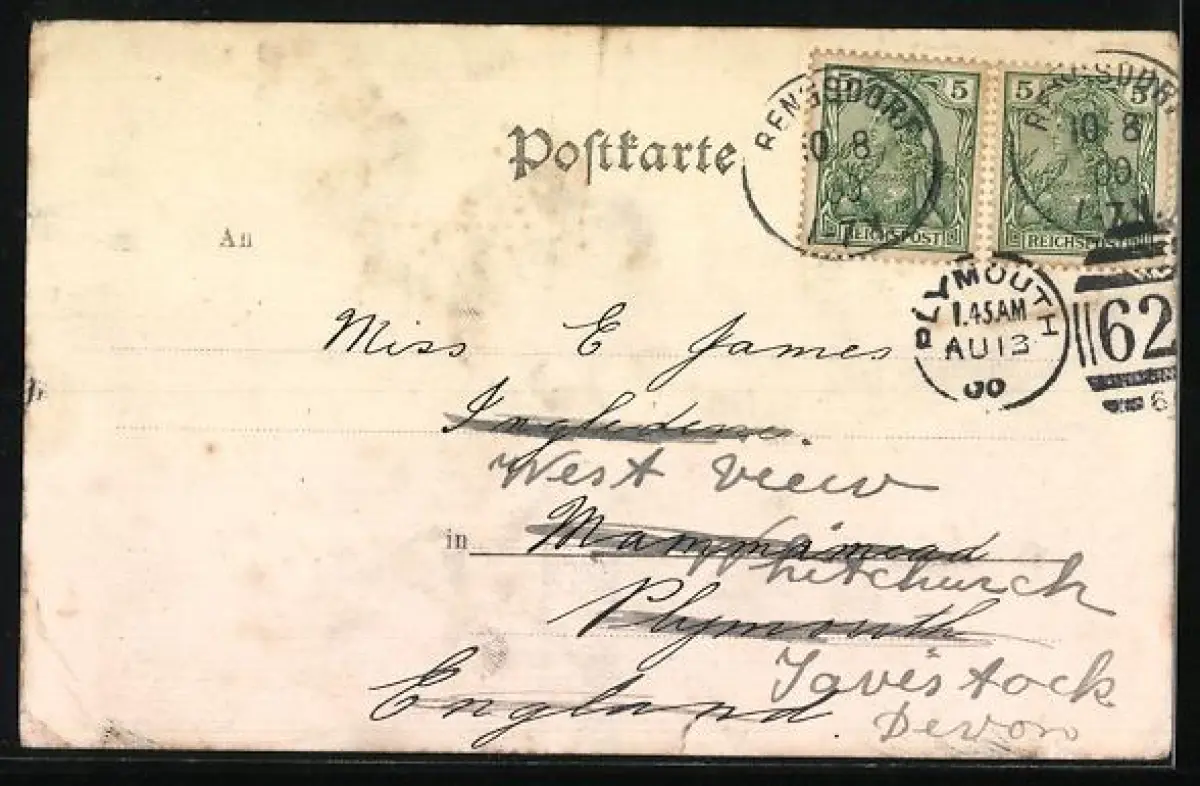 Postkarte
RENGSDORF
10 8
00
5 5
REICHSPOST
RENGSDORF
10 8
00
5 5
REICHSPOST
An
PLYMOUTH
1.45AM
AU 13
00
62
6
Miss E James
Ingledene.
West View
in
Whitchurch
Plymouth
Tavistock
England
Devon